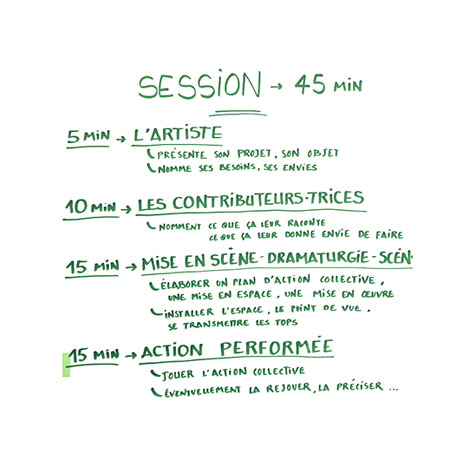 SESSION → 45 MIN
5 MIN → L'ARTISTE
PRÉSENTE SON PROJET, SON OBJET
NOMME SES BESOINS, SES ENVIES
10 MIN → LES CONTRIBUTEURS·TRICES
NOMMENT CE QUE ÇA LEUR RACONTE
CE QUE ÇA LEUR DONNE ENVIE DE FAIRE
15 MIN → MISE EN SCÈNE - DRAMATURGIE - SCÉN.
ÉLABORER UN PLAN D'ACTION COLLECTIVE,
UNE MISE EN ESPACE, UNE MISE EN ŒUVRE
INSTALLER L'ESPACE, LE POINT DE VUE,
SE TRANSMETTRE LES TOPS
15 MIN → ACTION PERFORMÉE
JOUER L'ACTION COLLECTIVE
ÉVENTUELLEMENT LA REJOUER, LA PRÉCISER ...